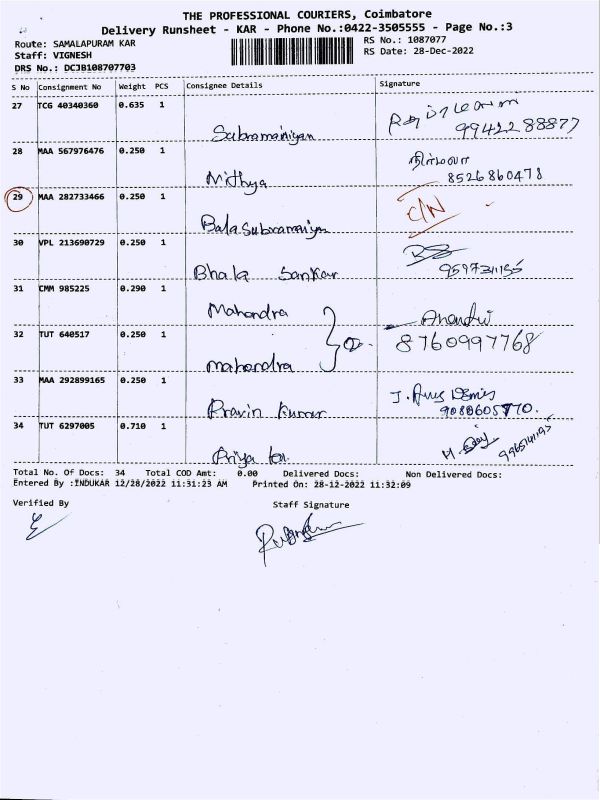 THE PROFESSIONAL COURIERS, Coimbatore
Delivery Runsheet - KAR - Phone No.:0422-3505555 - Page No.:3
Route: SAMALAPURAM KAR
RS No.: 1087077
Staff: VIGNESH
RS Date: 28-Dec-2022
DRS No.: DCJB108707703
S No Consignment No Weight PCS Consignee Details Signature
27 TCG 40340360 0.635 1
Subramaniyan
9942288877
28 MAA 567976476 0.250 1
Nithya
நிர்மலா
8526860478
29 MAA 282733466 0.250 1
Bala Subramaniyan
C/N
30 VPL 213690729 0.250 1
Bhala Sankar
9597311155
31 CMM 985225 0.290 1
Mahendra
Anandhi
32 TUT 640517 0.250 1
8760997768
mahendra
33 MAA 292899165 0.250 1
Pravin Kumar
9080605770.
34 TUT 6297005 0.710 1
Priya
Total No. Of Docs: 34 Total COD Amt: 0.00 Delivered Docs: Non Delivered Docs:
Entered By :INDUKAR 12/28/2022 11:31:23 AM Printed On: 28-12-2022 11:32:09
Verified By Staff Signature